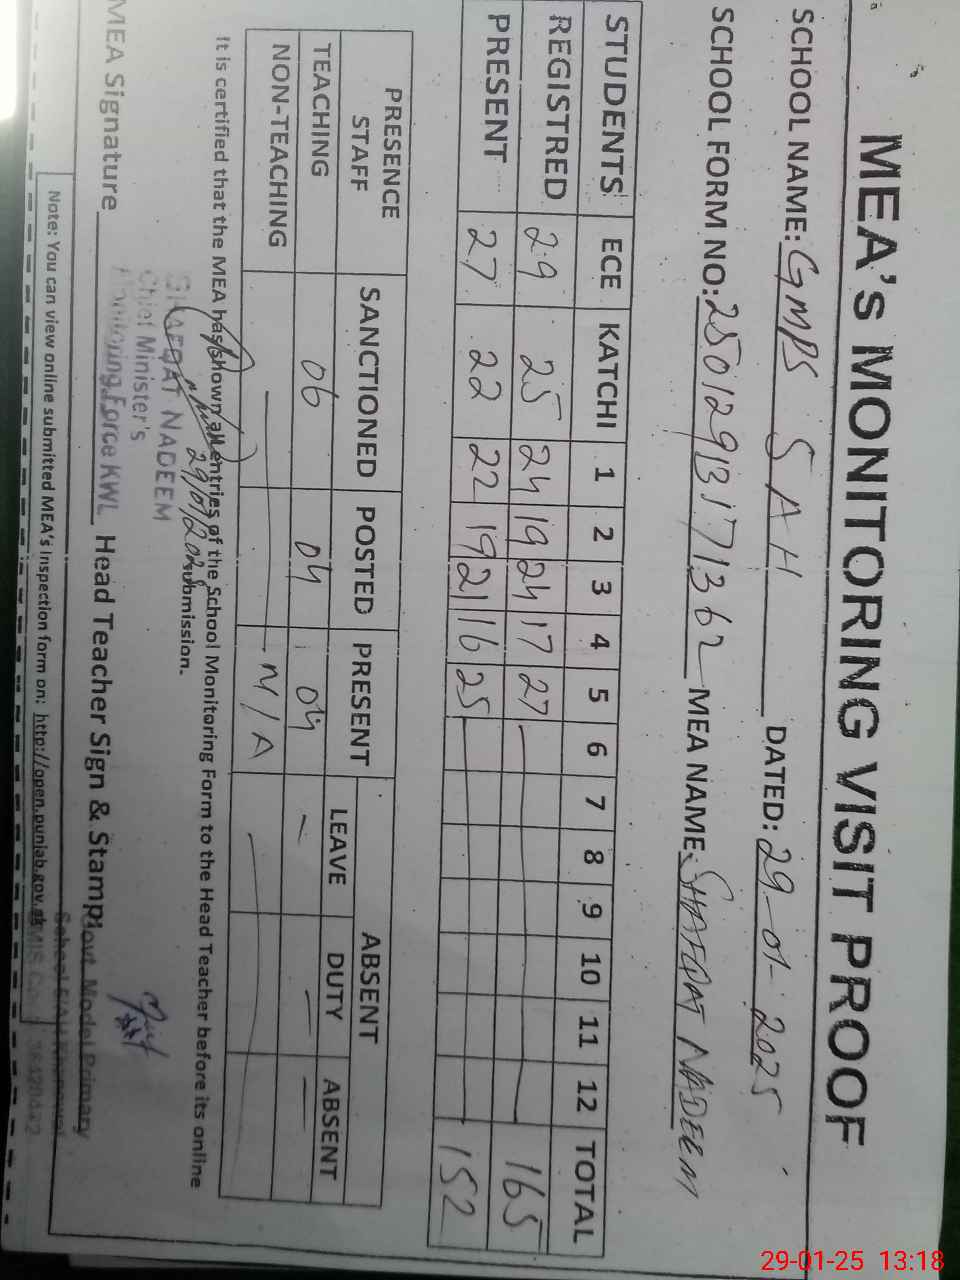 MEA'S MONITORING VISIT PROOF
SCHOOL NAME: GMPS 5 AH DATED: 29-01-2025
SCHOOL FORM NO: 2501291317171362 MEA NAME: SHAFQAT NADEEM
STUDENTS ECE KATCHI 1 2 3 4 5 6 7 8 9 10 11 12 TOTAL
REGISTRED 29 25 24 19 24 17 27 165
PRESENT 27 22 22 19 21 16 25 152
PRESENCE STAFF SANCTIONED POSTED PRESENT ABSENT
LEAVE DUTY ABSENT
TEACHING 06 04 04 — — —
NON-TEACHING — N/A —
It is certified that the MEA has shown all entries of the School Monitoring Form to the Head Teacher before its online
submission.
29/01/2025
SHAFQAT NADEEM
Chief Minister's
Monitoring Force KWL
MEA Signature Head Teacher Sign & Stamp:
Govt. Model Primary
School 5/AH Khanewal
Note: You can view online submitted MEA's inspection form on: http://open.punjab.gov.pk
29-01-25 13:18